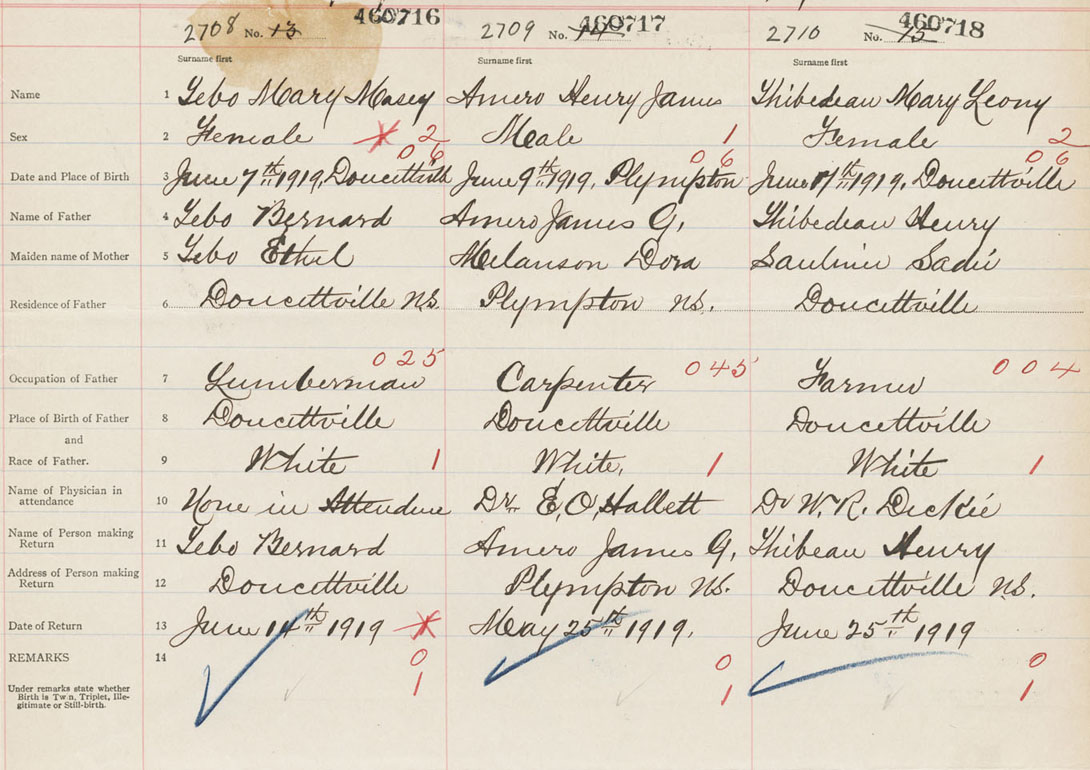 460716 460717 460718
2708 No. 13 2709 No. 14 2710 No. 15
Surname first Surname first Surname first
Name 1 Gebo Mary Masey Amero Henry James Thibedeau Mary Leony
Sex 2 Female 2 Male 1 Female 2
06 06 06
Date and Place of Birth 3 June 7th 1919, June 9th 1919. Plympton June 1919. Doucettville
Name of Father 4 Gebo Bernard Amero James G. Thibedeau Henry
Maiden name of Mother 5 Gebo Ethel Melanson Dora Saulnier Sadie
Residence of Father 6 Doucettville N.S. Plympton N.S. Doucettville
025 045 004
Occupation of Father 7 Lumberman Carpenter Farmer
Place of Birth of Father 8 Doucettville Doucettville Doucettville
and
Race of Father. 9 White 1 White, 1 White 1
Name of Physician in
attendance 10 None in Attendence Dr. E. O. Hallett Dr W. R. Dickie
Name of Person making
Return 11 Gebo Bernard Amero James G. Thibeau Henry
Address of Person making
Return 12 Doucettville Plympton N.S. Doucettville N.S.
Date of Return 13 June 14th 1919 May 25th 1919. June 25th 1919
REMARKS 14 0 0 0
Under remarks state whether
Birth is Twin, Triplet, Ille-
gitimate or Still-birth.
1 1 1